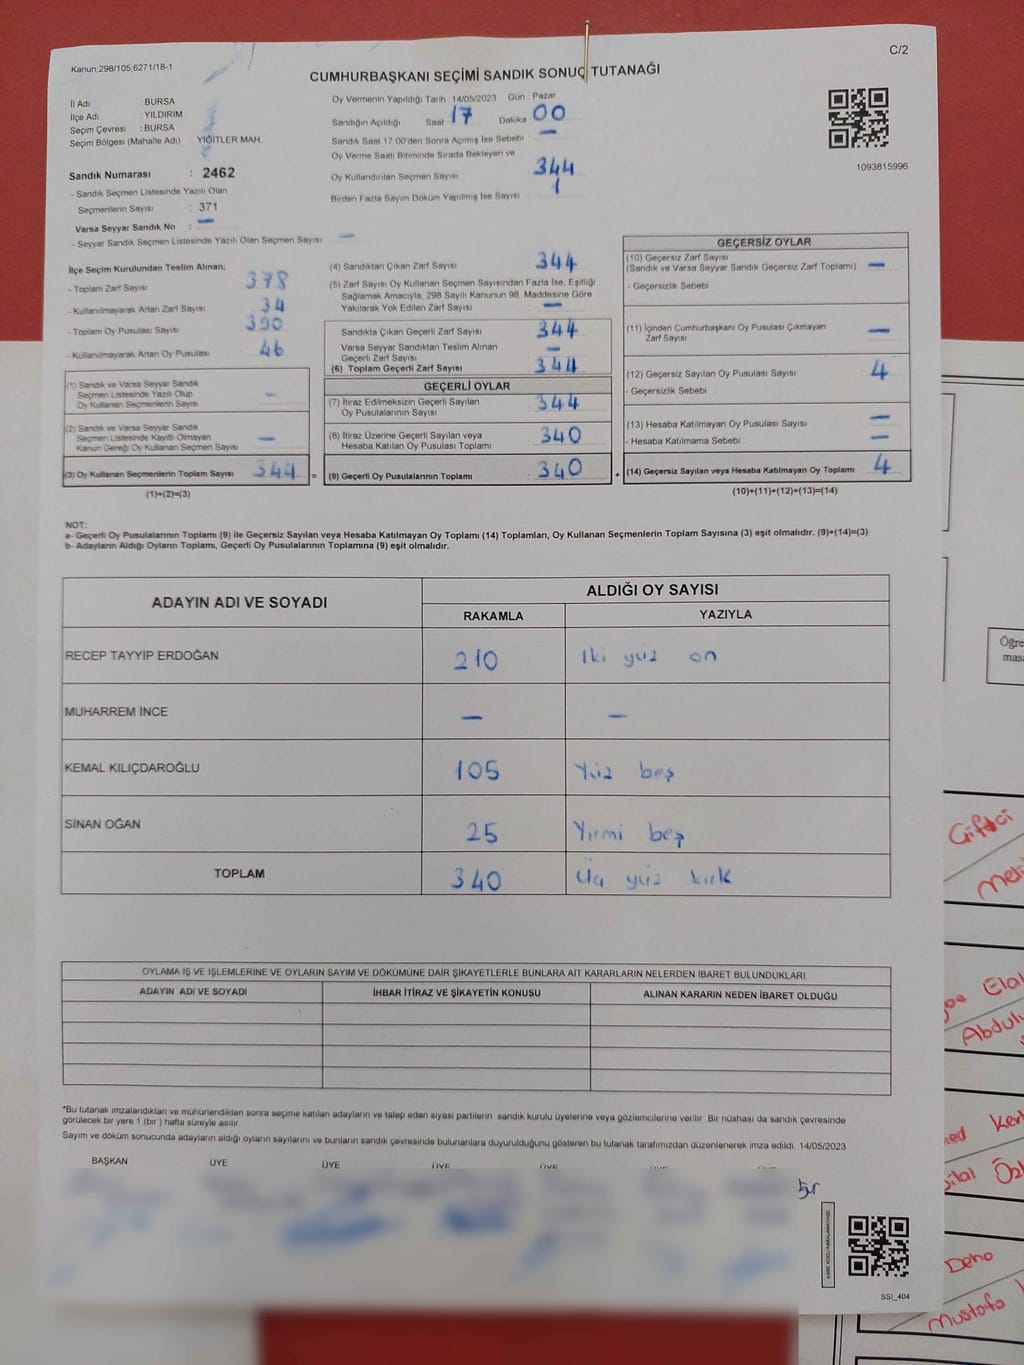 Kanun,298/105,6271/18-1
C/2
CUMHURBAŞKANI SEÇİMİ SANDIK SONUÇ TUTANAĞI
İl Adı : BURSA
İlçe Adı : YILDIRIM
Seçim Çevresi : BURSA
Seçim Bölgesi (Mahalle Adı) YİĞİTLER MAH.
Sandık Numarası : 2462
- Sandık Seçmen Listesinde Yazılı Olan
Seçmenlerin Sayısı : 371
Varsa Seyyar Sandık No : —
- Seyyar Sandık Seçmen Listesinde Yazılı Olan Seçmen Sayısı : —
Oy Vermenin Yapıldığı Tarih :14/05/2023 Gün : Pazar
Sandığın Açıldığı Saat 17 Dakika 00
Sandık Saat 17:00'den Sonra Açımış İse Sebebi : —
Oy Verme Saati Bitiminde Sırada Bekleyen ve
Oy Kullandırılan Seçmen Sayısı 344
Birden Fazla Sayım Döküm Yapılmış İse Sayısı : 1
1093815996
İlçe Seçim Kurulundan Teslim Alınan;
- Toplam Zarf Sayısı 378
- Kullanılmayarak Artan Zarf Sayısı 34
- Toplam Oy Pusulası Sayısı 390
- Kullanılmayarak Artan Oy Pusulası 46
(1) Sandık ve Varsa Seyyar Sandık
Seçmen Listesinde Yazılı Olup
Oy Kullanan Seçmenlerin Sayısı —
(2) Sandık ve Varsa Seyyar Sandık
Seçmen Listesinde Kayıtlı Olmayan
Kanun Gereği Oy Kullanan Seçmen Sayısı —
(3) Oy Kullanan Seçmenlerin Toplam Sayısı 344 =
(1)+(2)=(3)
(4) Sandıktan Çıkan Zarf Sayısı 344
(5) Zarf Sayısı Oy Kullanan Seçmen Sayısından Fazla İse, Eşitliği
Sağlamak Amacıyla, 298 Sayılı Kanunun 98. Maddesine Göre
Yakılarak Yok Edilen Zarf Sayısı —
Sandıkta Çıkan Geçerli Zarf Sayısı 344
Varsa Seyyar Sandıktan Teslim Alınan
Geçerli Zarf Sayısı —
(6) Toplam Geçerli Zarf Sayısı 344
GEÇERLİ OYLAR
(7) İtiraz Edilmeksizin Geçerli Sayılan
Oy Pusulalarının Sayısı 344
(8) İtiraz Üzerine Geçerli Sayılan veya
Hesaba Katılan Oy Pusulaları Toplamı 340
(9) Geçerli Oy Pusulalarının Toplamı 340 +
GEÇERSİZ OYLAR
(10) Geçersiz Zarf Sayısı
(Sandık ve Varsa Seyyar Sandık Geçersiz Zarf Toplamı) —
- Geçersizlik Sebebi
(11) İçinden Cumhurbaşkanı Oy Pusulası Çıkmayan
Zarf Sayısı —
(12) Geçersiz Sayılan Oy Pusulası Sayısı 4
- Geçersizlik Sebebi
(13) Hesaba Katılmayan Oy Pusulası Sayısı —
- Hesaba Katılmama Sebebi —
(14) Geçersiz Sayılan veya Hesaba Katılmayan Oy Toplamı 4
(10)+(11)+(12)+(13)=(14)
NOT:
a- Geçerli Oy Pusulalarının Toplamı (9) ile Geçersiz Sayılan veya Hesaba Katılmayan Oy Toplamı (14) Toplamları, Oy Kullanan Seçmenlerin Toplam Sayısına (3) eşit olmalıdır. (9)+(14)=(3)
b- Adayların Aldığı Oyların Toplamı, Geçerli Oy Pusulalarının Toplamına (9) eşit olmalıdır.
ADAYIN ADI VE SOYADI ALDIĞI OY SAYISI
RAKAMLA YAZIYLA
RECEP TAYYİP ERDOĞAN 210 İki yüz on
MUHARREM İNCE — —
KEMAL KILIÇDAROĞLU 105 Yüz beş
SİNAN OĞAN 25 Yirmi beş
TOPLAM 340 Üç yüz kırk
OYLAMA İŞ VE İŞLEMLERİNE VE OYLARIN SAYIM VE DÖKÜMÜNE DAİR ŞİKAYETLERLE BUNLARA AİT KARARLARIN NELERDEN İBARET BULUNDUKLARI
ADAYIN ADI VE SOYADI İHBAR İTİRAZ VE ŞİKAYETİN KONUSU ALINAN KARARIN NEDEN İBARET OLDUĞU
*Bu tutanak imzalandıktan ve mühürlendikten sonra seçime katılan adayların ve talep eden siyasi partilerin sandık kurulu üyelerine veya gözlemcilerine verilir. Bir nüshası da sandık çevresinde
görülecek bir yere 1 (bir) hafta süreyle asılır.
Sayım ve döküm sonucunda adayların aldığı oyların sayılarını ve bunların sandık çevresinde bulunanlara duyurulduğunu gösteren bu tutanak tarafımızdan düzenlenerek imza edildi. 14/05/2023
BAŞKAN ÜYE ÜYE ÜYE ÜYE ÜYE ÜYE
SSI_404
Öğre
mas
Çiftçi
Abdul
Bilal
Deno
Mustafa